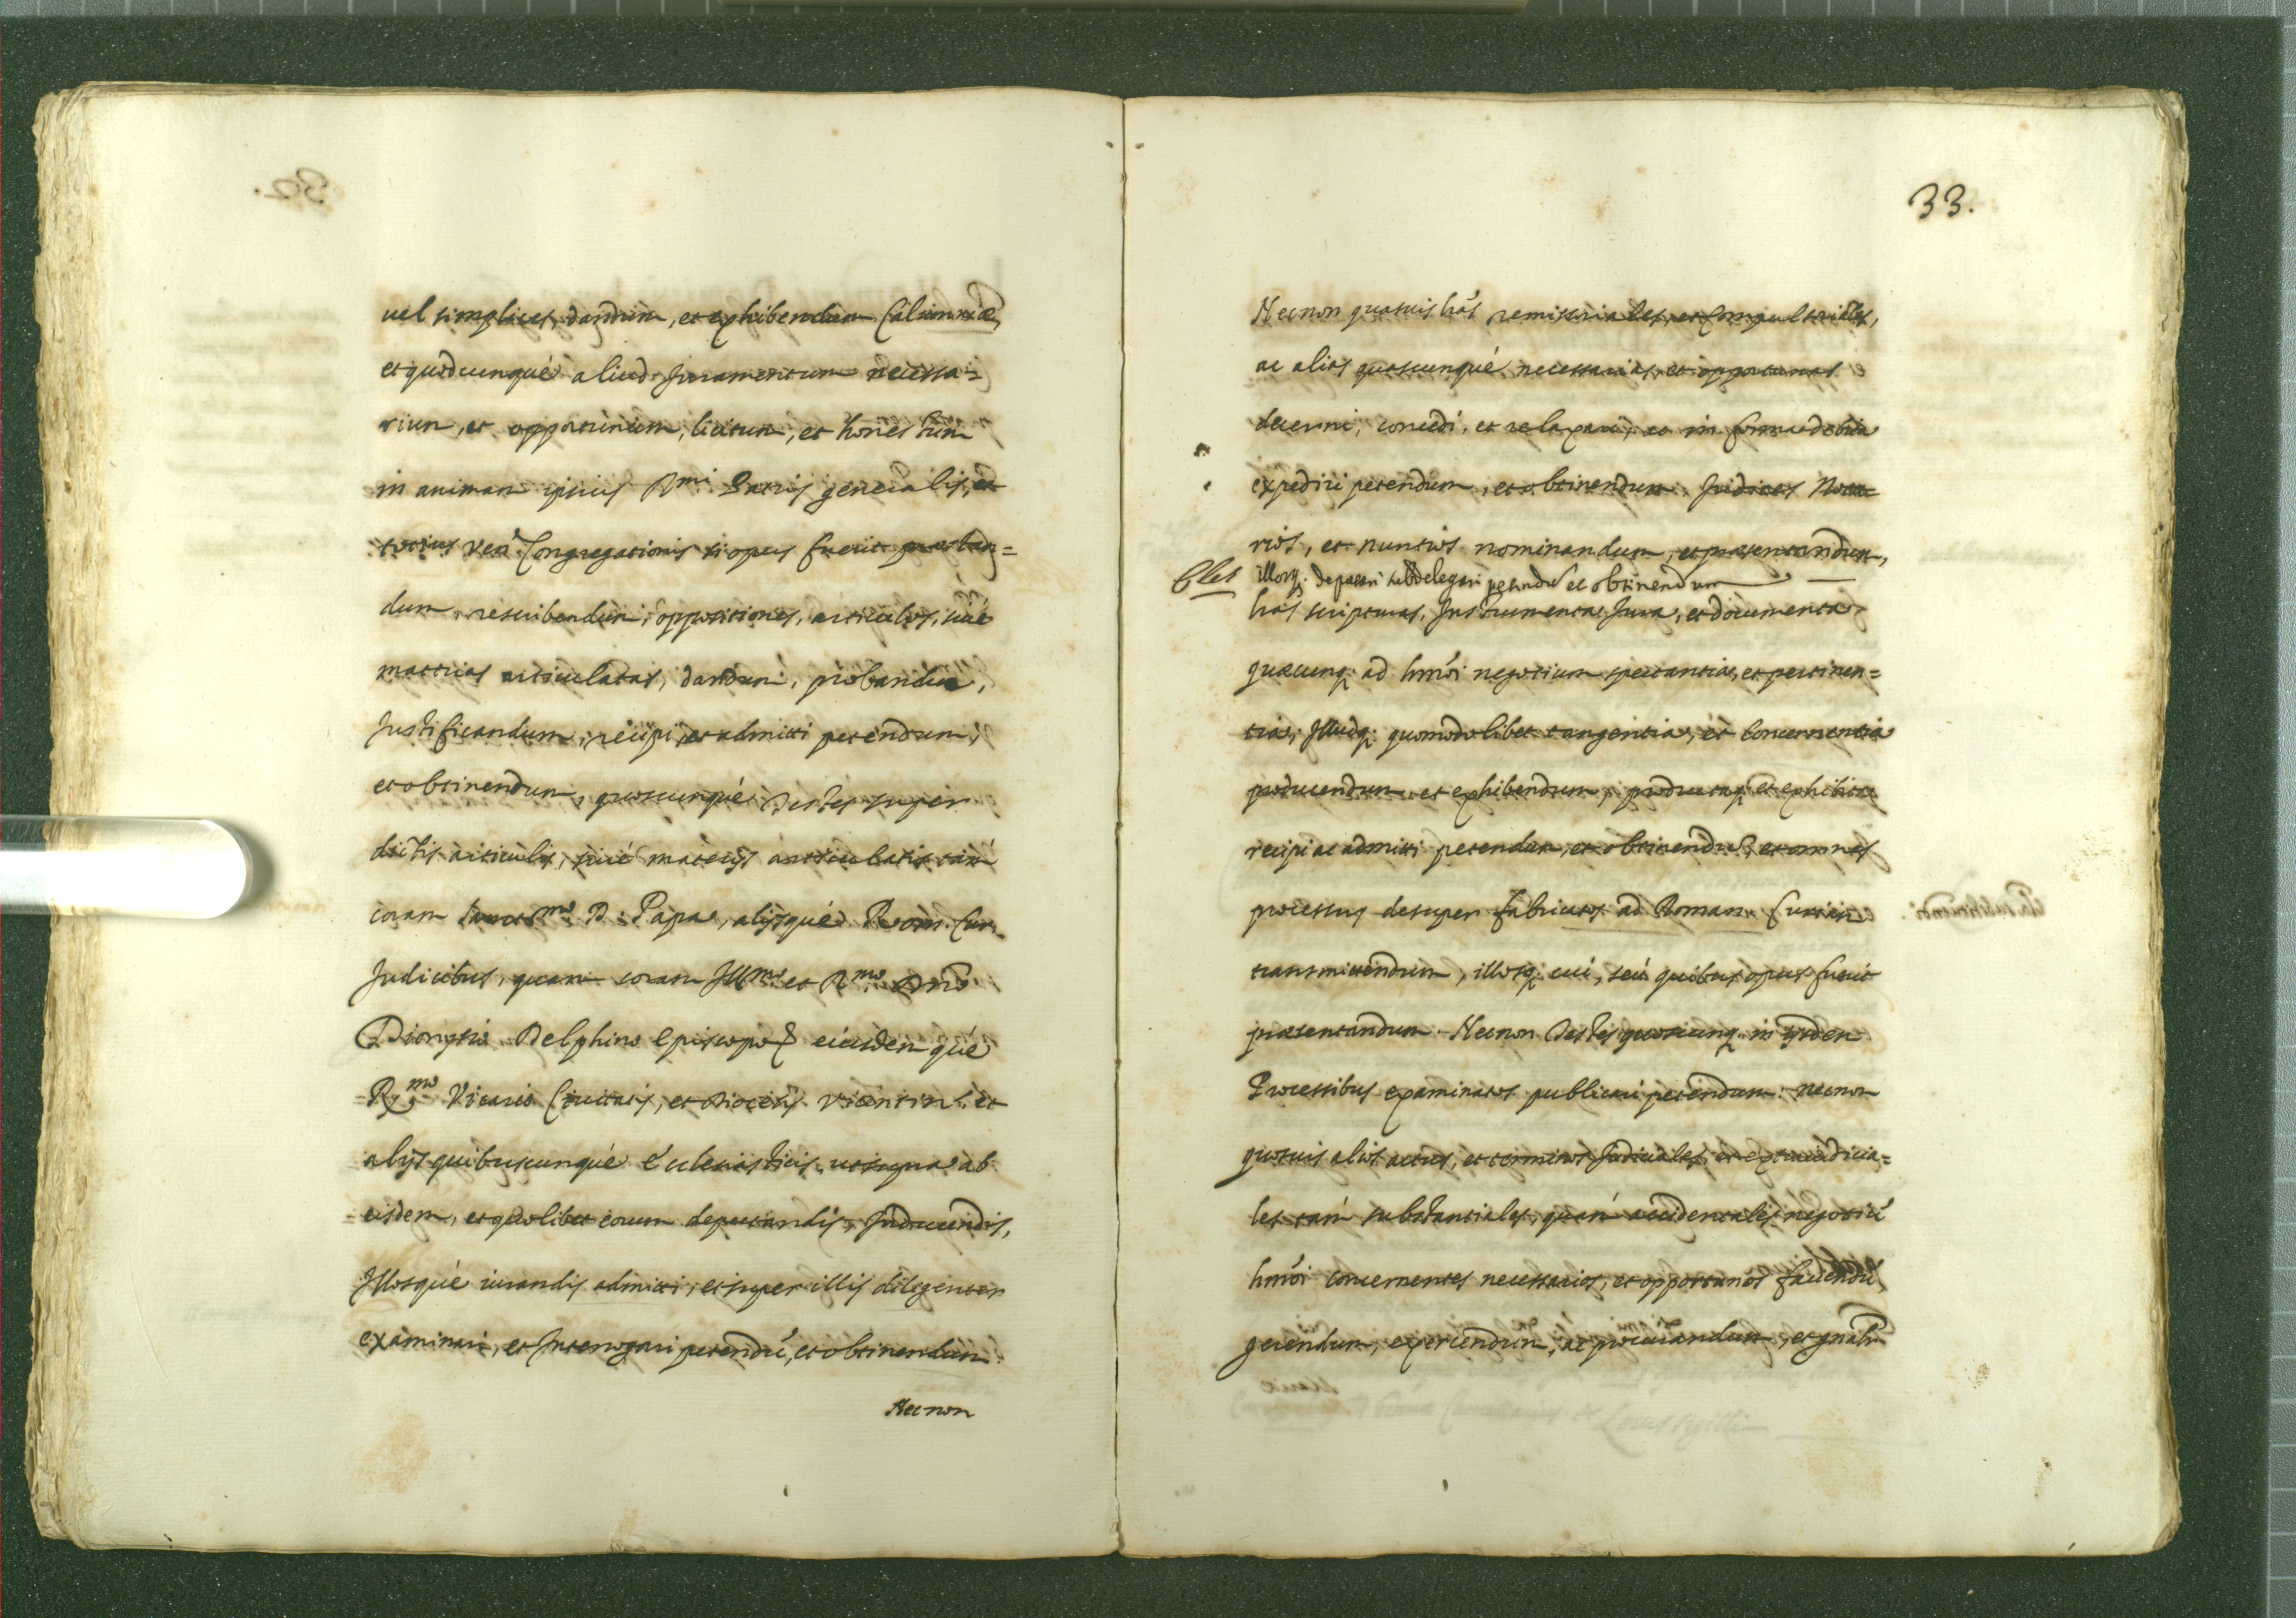 uel simplices, dandum, et exhibendum Calumniæ,
et quodcunquè aliud Juramentum necessa=
rium, et opportunum, licitum, et honestum
in animam ipsius Rmi Patris generalis, et
totius Ven. Congregationis si opus fuerit præstan=
dum, rescribendum, oppositiones, articulos, siué
materias articulatas, dandum, probandum,
Justificandum, recipi, et admitti petendum,
et obtinendum, quoscunquè Testes super
dictis articulis, siué materijs articulatis tam
coram Sanctmo D. Papa, alijsquè Rom. Cur.
Judicibus, quam coram Illmo et Rmo Dno
Dionysio Delphino Episcopo & eiusdemquè
Rmo Vicario Ciuitatis, et Diocesis Vicentin. et
alijs quibuscunquè Ecclesiasticis utsupra ab
eisdem, et quolibet eorum deputandis, Inducendis,
Illosquè iurandis admitti, et super illis diligenter
examinari, et Interrogari petendú, et obtinendum
Necnon
33.
Necnon quasuis lrás remissoriales, et Compulsoriales,
ac alias quascunquè necessarias, et opportunas
decerni, concedi, et relaxari, ac in forma debita
expediri petendum, et obtinendum, Judices Nota=
rios, et nuntios nominandum, et præsentandum,
illosq. deputari subdelegari petendú et obtinendum
lrás scripturas, Instrumenta Jura, et documenta
quæcunq. ad hmói negotium spectantia, et pertinen=
tia, Illudq. quomodolibet tangentia, et Concernentia
producendum et exhibendum, productaq. et exhibita
recipi ac admitti petendum, et obtinendú, et omnes
processus desuper fabricatos ad Roman. Curiam
transmittendum, illosq. cui, seú quibus opus fuerit
præsentandum. Necnon Testes quoscunq. in ijsdem
Processibus examinatos publicari petendum: necnon
quosuis alios actus, et terminos Judiciales, et extraiudicia=
les tam substantiales, quam accidentales negotiú
hmói concernentes necessarios, et opportunos faciendú,
gerendum, exercendum, ac procurandum, et gnalr